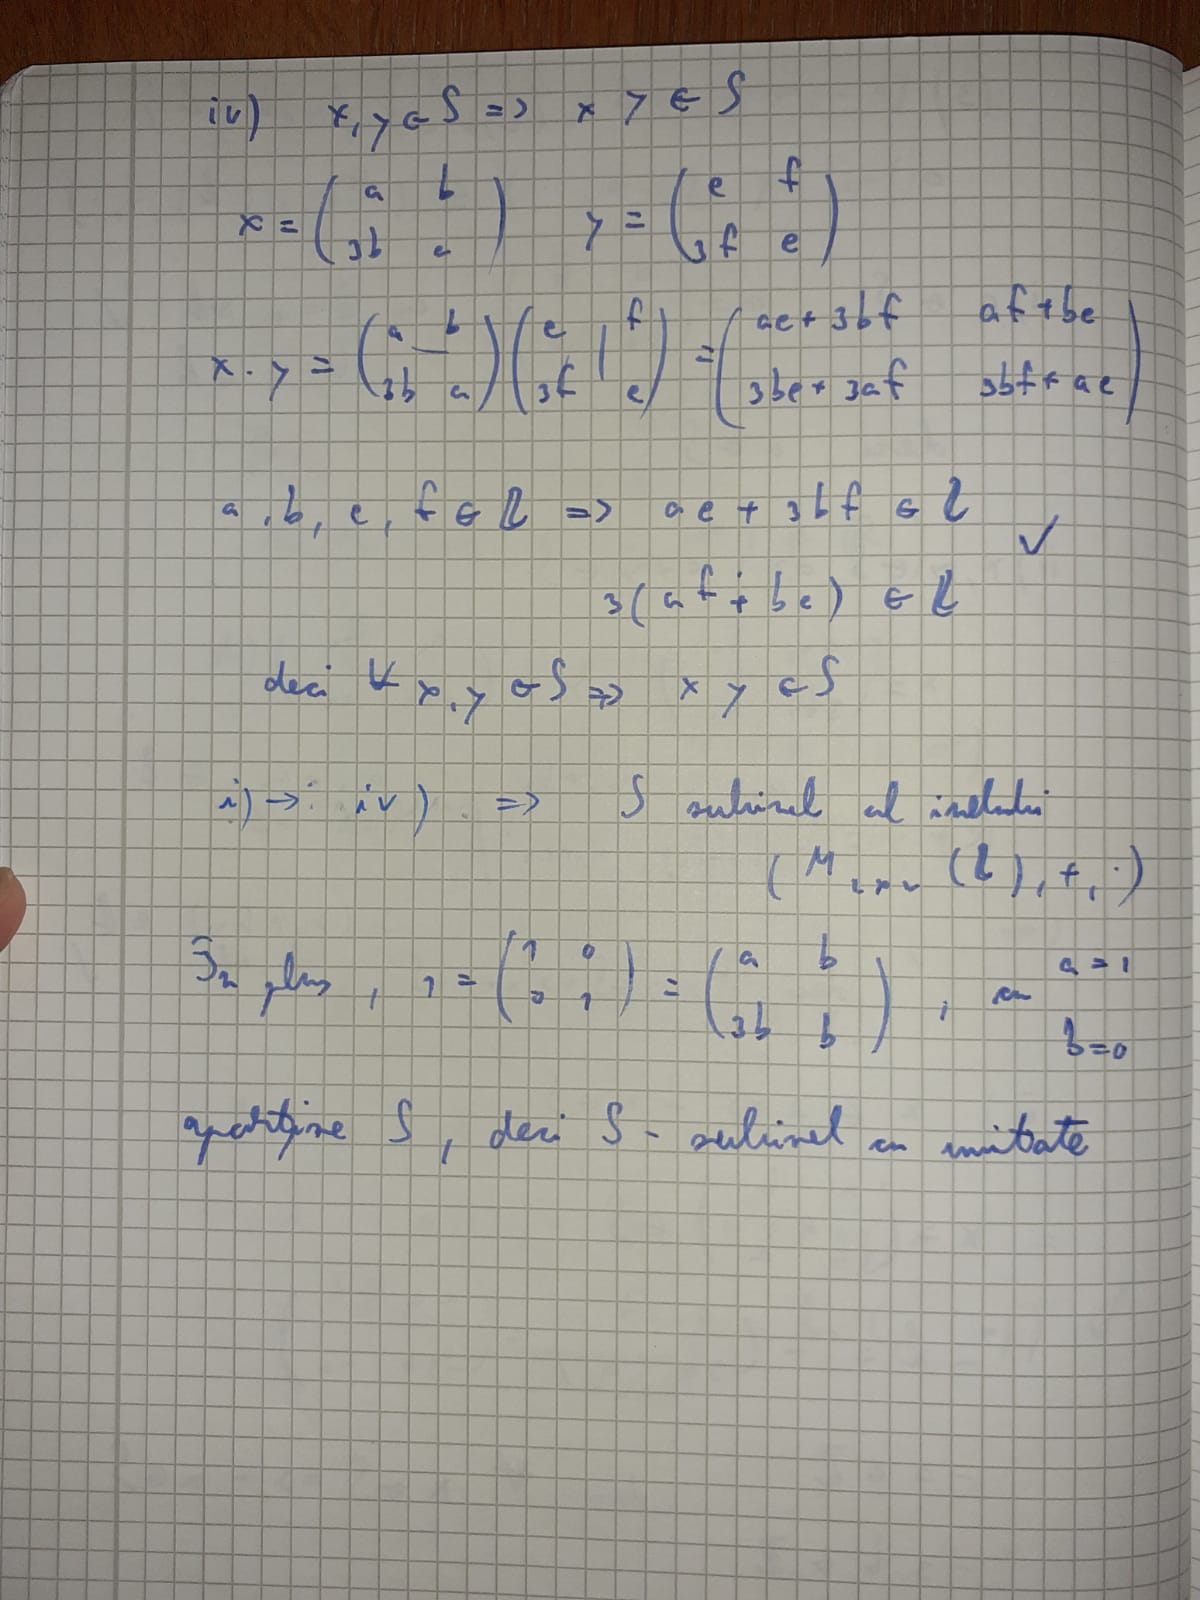 iv) x, y ∈ S => x y ∈ S
x = ( a b ) y = ( e f )
( 3b a ) ( 3f e )
x · y = ( a b ) ( e f ) = ( ae + 3bf af + be )
( 3b a ) ( 3f e ) ( 3be + 3af 3bf + ae )
a, b, e, f ∈ ℤ => ae + 3bf ∈ ℤ ✓
3(af + be) ∈ ℤ
deci ∀ x, y ∈ S => x y ∈ S
i) → iv) => S subinel al inelului
(M₂ₓ₂ (ℤ), +, ·)
În plus, 1 = ( 1 0 ) = ( a b ), cu a = 1
( 0 1 ) ( 3b b ) b = 0
aparține S, deci S - subinel cu unitate